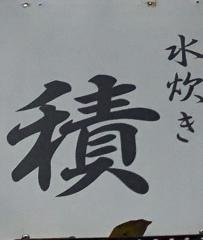 水炊き
積